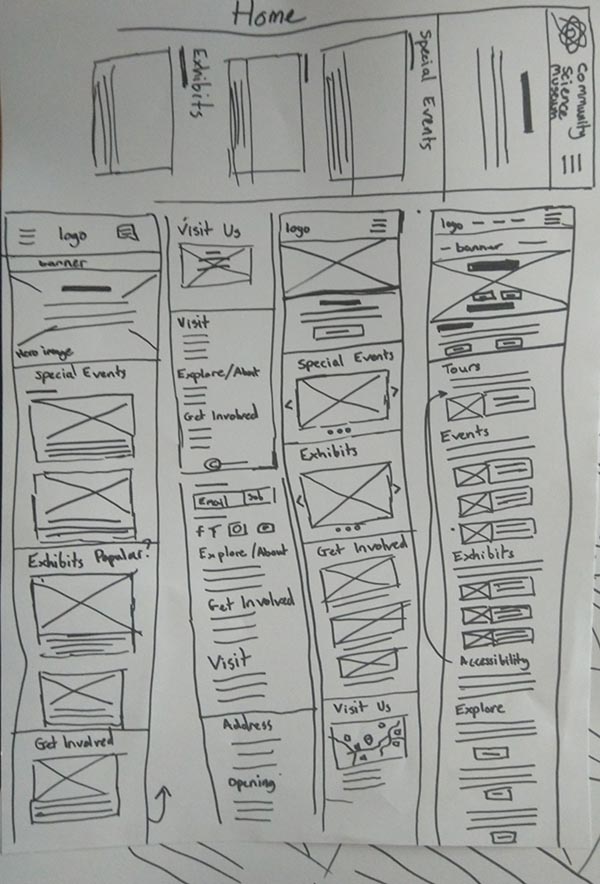 Home
Community
Science
Museum
Special Events
Exhibits
logo
banner
Hero image
Special Events
Exhibits Popular?
Get Involved
Visit Us
Visit
Explore/About
Get Involved
Email Sub
f T
Explore/About
Get Involved
Visit
Address
Opening
logo
Special Events
Exhibits
Get Involved
Visit Us
logo
banner
Tours
Events
Exhibits
Accessibility
Explore